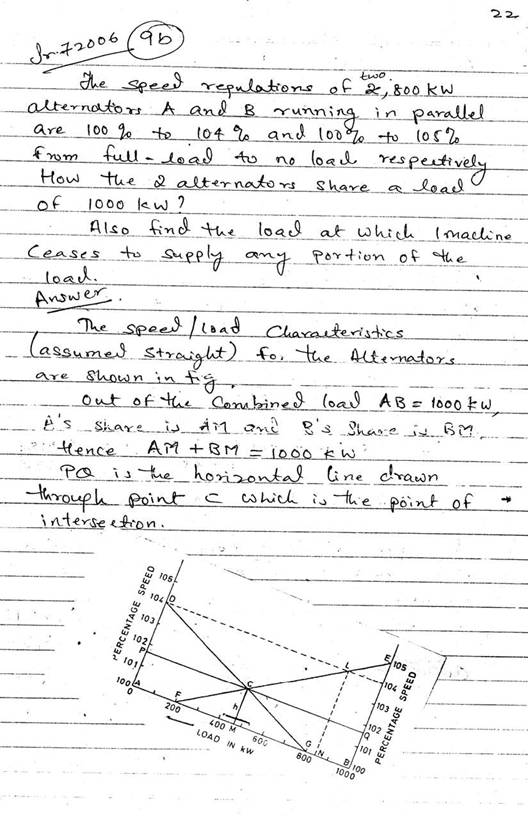 22
Jr. 72006 9b
The speed regulations of two, 800 kW
alternators A and B running in parallel
are 100% to 104% and 100% to 105%
from full-load to no load respectively
How the 2 alternators share a load
of 1000 kW?
Also find the load at which 1 machine
Ceases to supply any portion of the
load.
Answer.
The speed/load Characteristics
(assumed straight) for the Alternators
are shown in fig.
Out of the Combined load AB = 1000 kW,
A's share is AM and B's share is BM.
Hence AM + BM = 1000 kW
PQ is the horizontal line drawn
through point C which is the point of
intersection.
PERCENTAGE SPEED
105
104 D
103
102
P
101
100 A
0
F
200
400 M
600
G
800
N
B 100
1000
C
h
L
E 105
104
103
102
Q
101
PERCENTAGE SPEED
LOAD IN kW